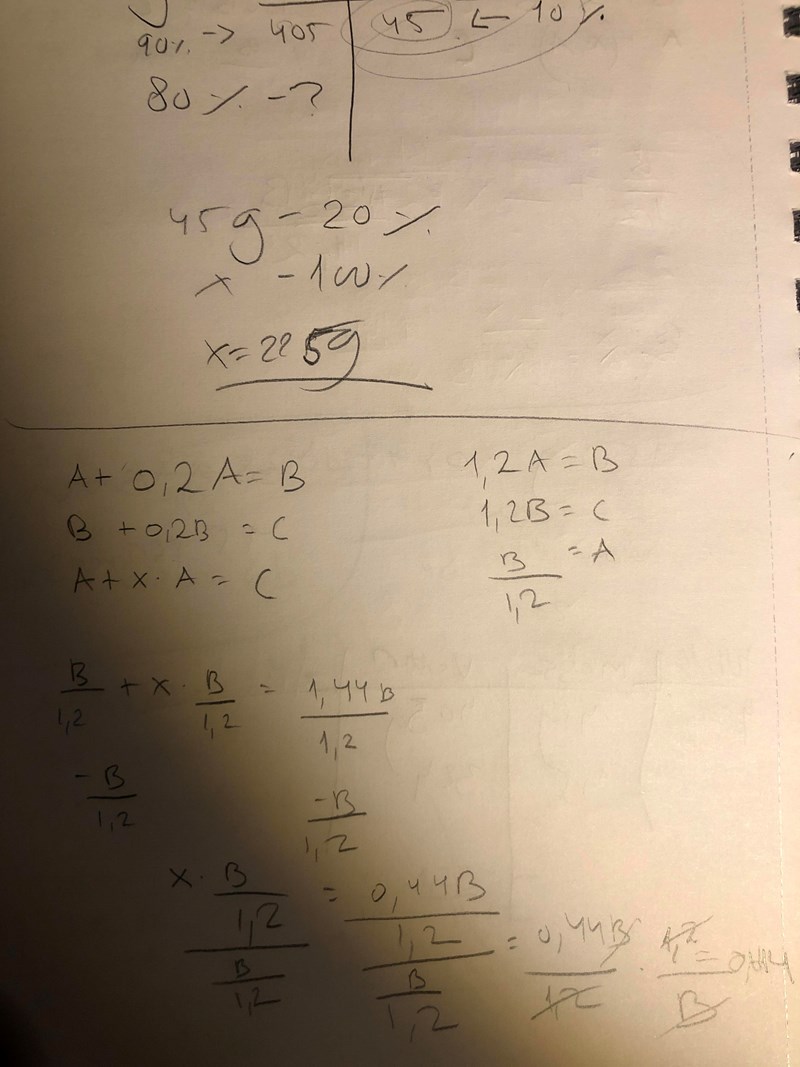 90% -> 405 | 45 <- 10%
80% - ?
45g - 20%
x - 100%
x = 225g
A + 0,2A = B
B + 0,2B = C
A + x · A = C
1,2A = B
1,2B = C
B/1,2 = A
B/1,2 + x · B/1,2 = 1,44B/1,2
-B/1,2 -B/1,2
x · B/1,2 / B/1,2 = 0,44B/1,2 / B/1,2 = 0,44B/1,2 · 1,2/B = 0,44